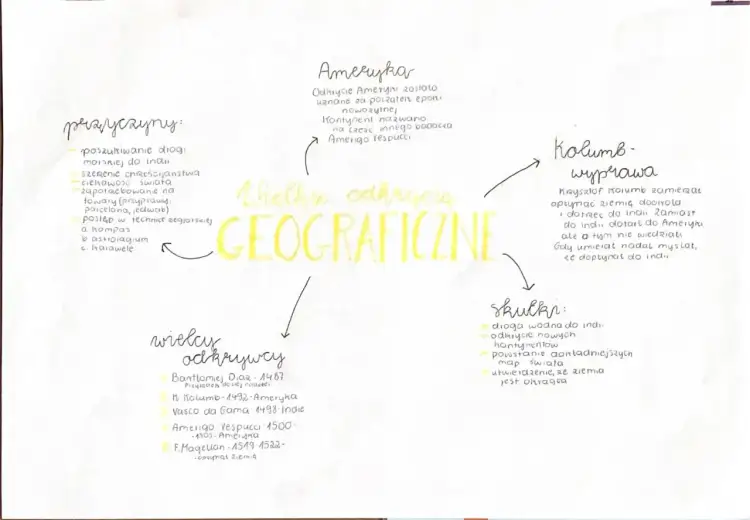 Wielkie odkrycia
GEOGRAFICZNE
Ameryka
Odkrycie Ameryki zostało
uznane za początek epoki
nowożytnej
Kontynent nazwano
na cześć innego badacza
Amerigo Vespucci
przyczyny:
poszukiwanie drogi
morskiej do Indii
szerzenie chrześcijaństwa
ciekawość świata
zapotrzebowanie na
towary (przyprawy,
porcelana, jedwab)
postęp w technice żeglarskiej
a kompas
b astrolabium
c karawele
Kolumb -
wyprawa
Krzysztof Kolumb zamierzał
opłynąć ziemię dookoła
i dotrzeć do Indii. Zamiast
do Indii dotarł do Ameryki
ale o tym nie wiedział.
Gdy umierał nadal myślał,
że dopłynął do Indii
skutki:
droga wodna do Indii
odkrycie nowych
kontynentów
powstanie dokładniejszych
map świata
utwierdzenie, że ziemia
jest okrągła
wielcy
odkrywcy
Bartłomiej Diaz - 1487
Przylądek Dobrej Nadziei
K. Kolumb - 1492 - Ameryka
Vasco da Gama 1498 Indie
Amerigo Vespucci 1500 -
- 1503 - Ameryka
F. Magellan - 1519 - 1522 -
- opłynął ziemię